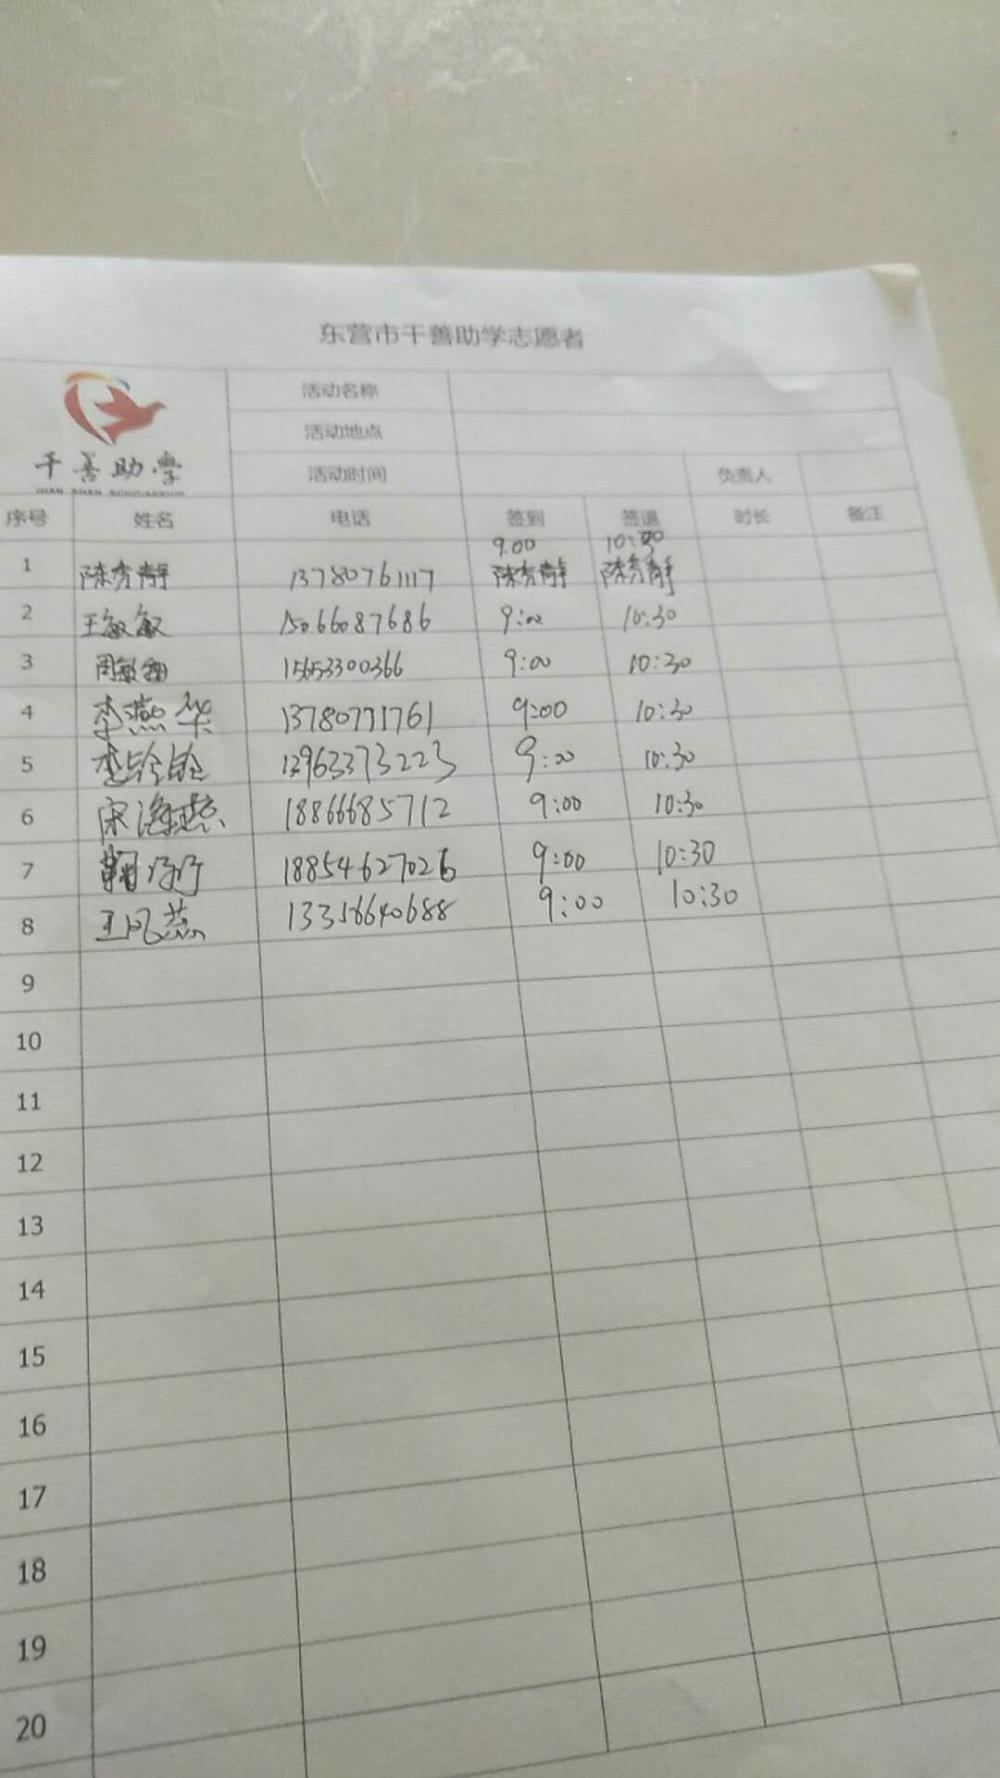 东营市千善助学志愿者
千善助学
QIAN SHAN SCHOLARSHIP
活动名称
活动地点
活动时间 负责人
序号 姓名 电话 签到 签退 时长 备注
9.00 10:30
1 陈秀静 13780761117 陈秀静 陈秀静
2 王敏敏 15066087686 9:00 10:30
3 周敏 15653300366 9:00 10:30
4 李燕华 13780771761 9:00 10:30
5 李 13963373223 9:00 10:30
6 宋海燕 18866685712 9:00 10:30
7 18854627026 9:00 10:30
8 王凤燕 13356640688 9:00 10:30
9
10
11
12
13
14
15
16
17
18
19
20